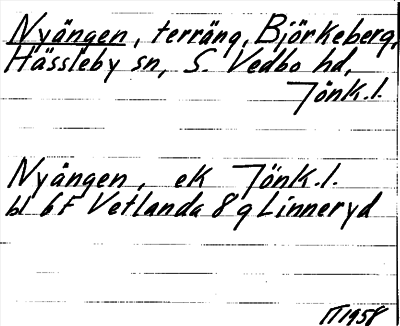 Nyängen, terräng, Björkeberg,
Hässleby sn, S. Vedbo hd,
Jönk.l.
Nyängen, ek Jönk.l.
bl 6F Vetlanda 8g Linneryd
1958